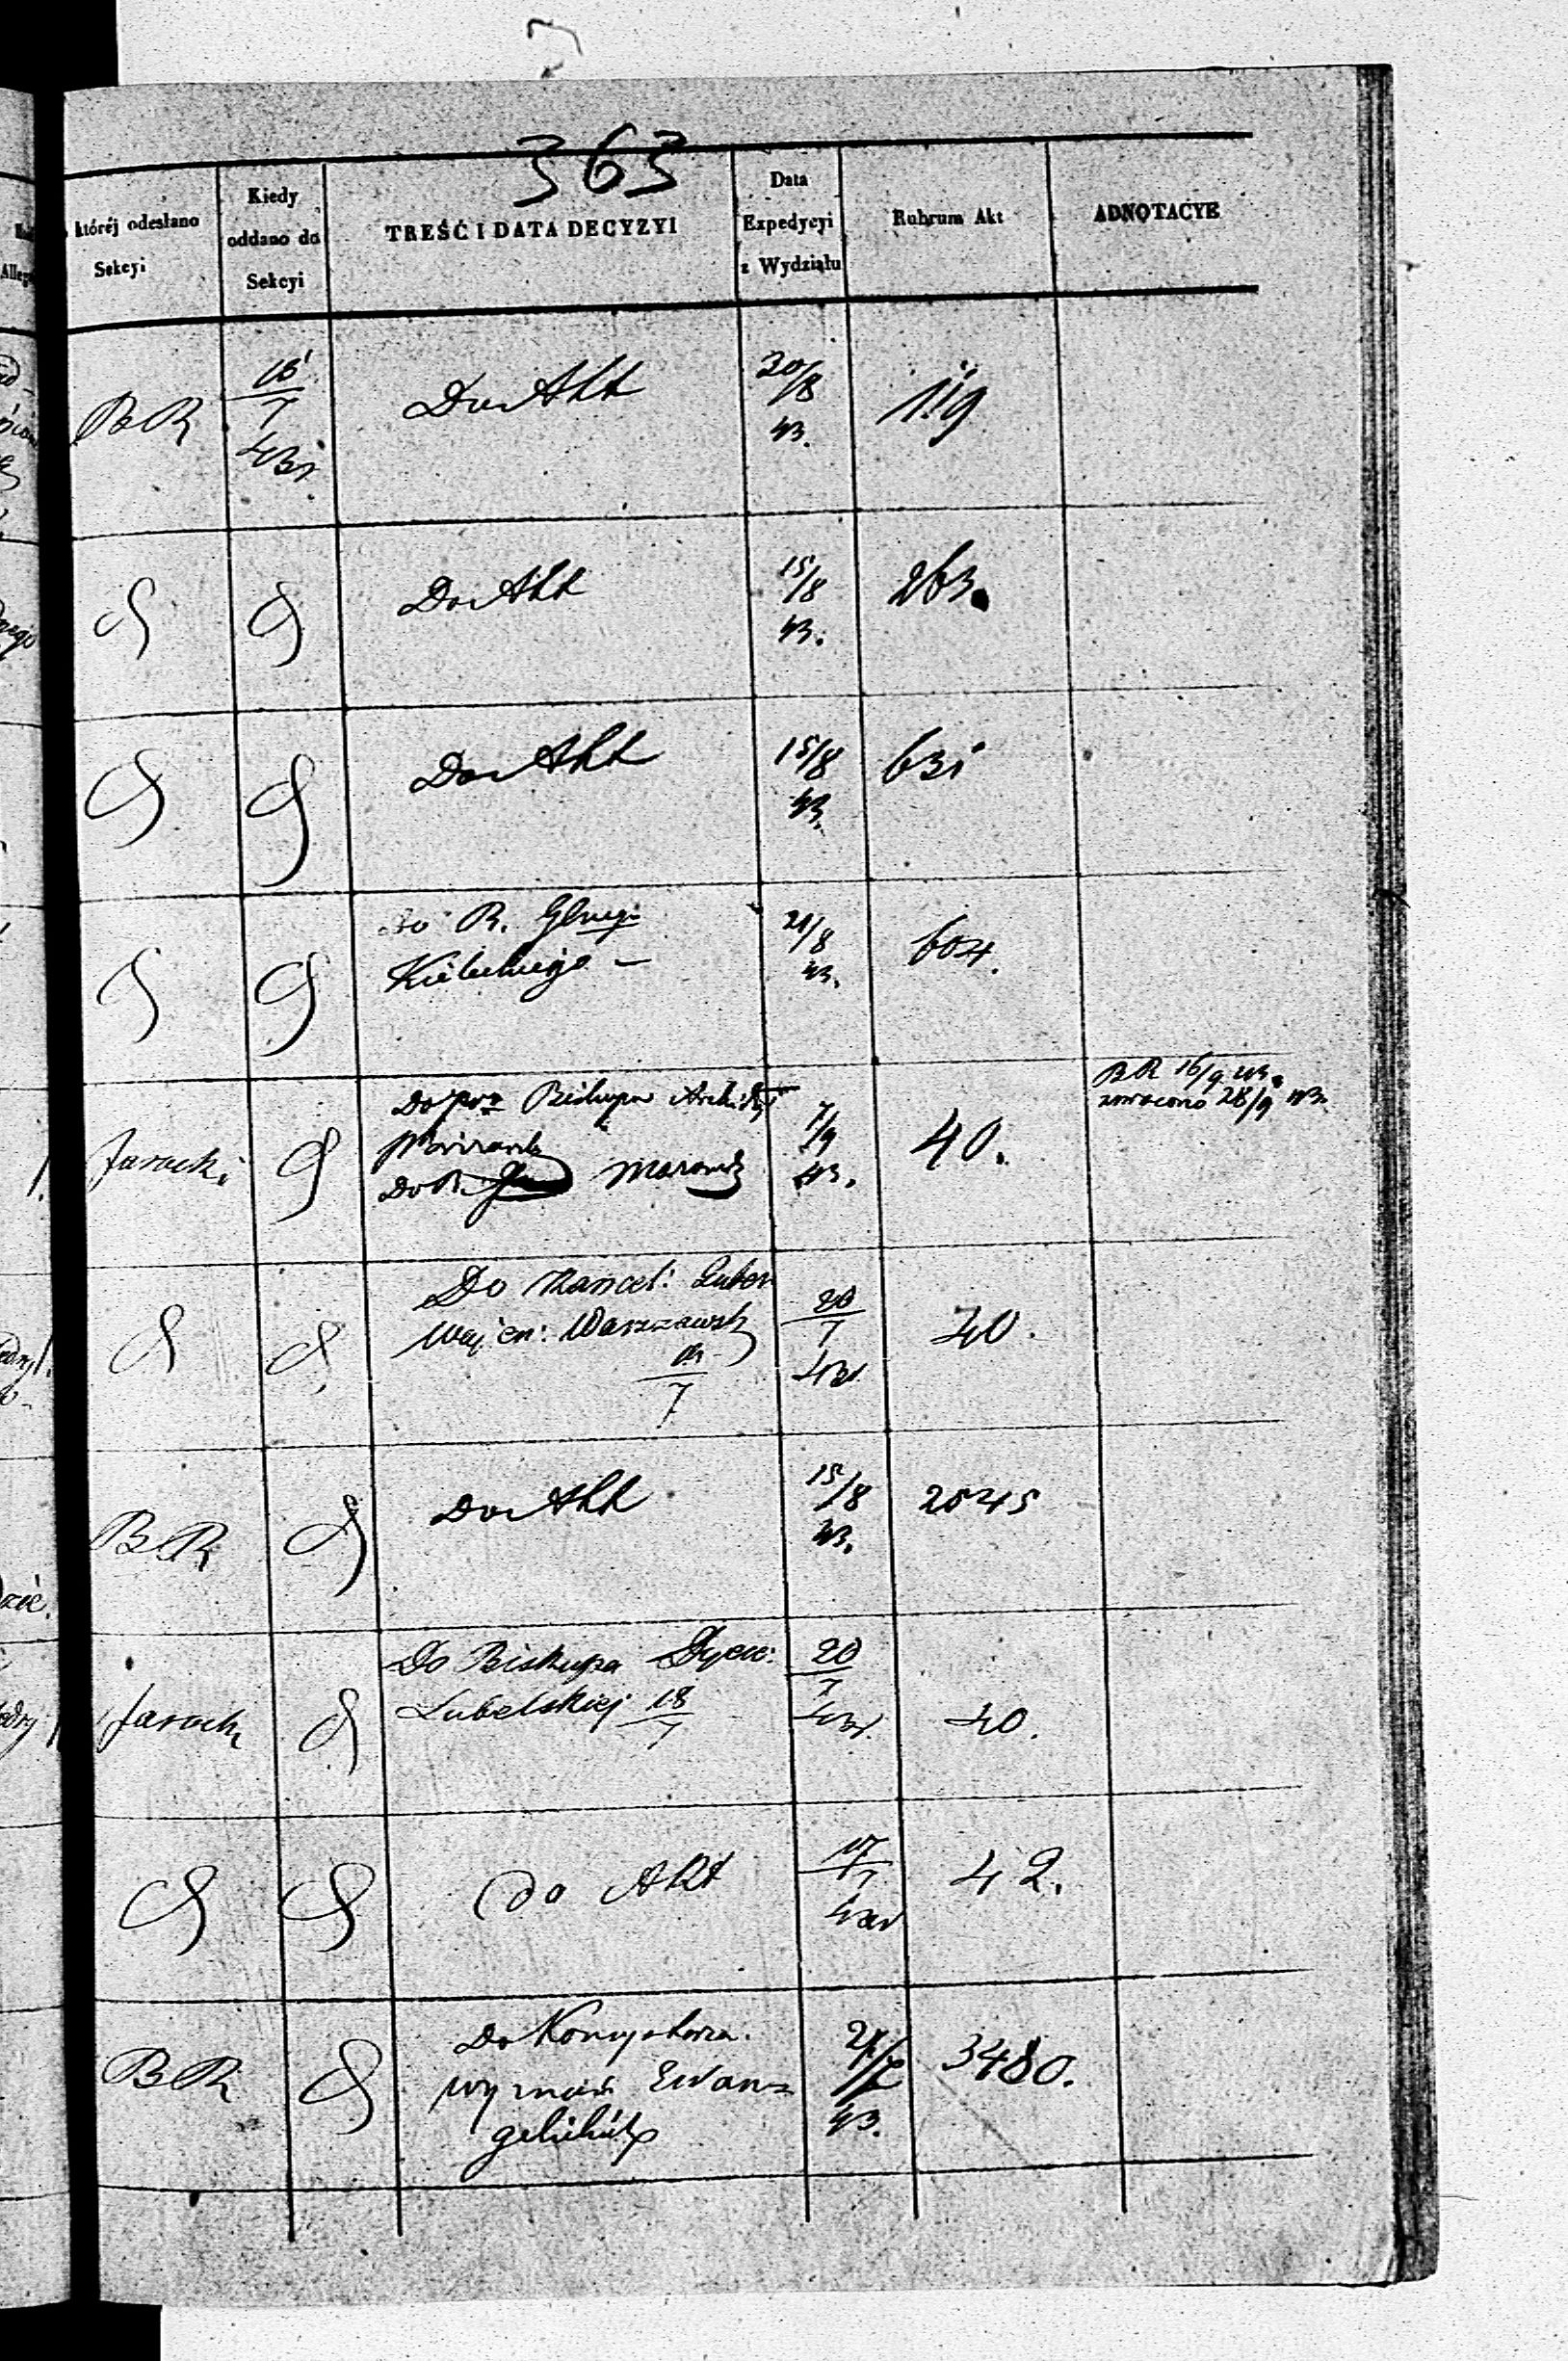 363
której odesłano
Sekcyi
Kiedy
oddano do
Sekcyi
TREŚĆ I DATA DECYZYI
Data
Expedycyi
z Wydziału
Rubrum Akt
ADNOTACYE
BR
Do Akt
30/8
43.
119
Do Akt
15/8
43.
263.
Do Akt
15/8
43.
631
Do R. Gbnego
Kieleckiego –
21/8
43.
604.
Jaracki
Biskupa
Do R.
7/9
43.
40.
BR 16/9 43.
zwrócono 28/9 43.
Do Kancel: Guber
Wojen: Warszawsk
7
20
7
40.
BR
Do Akt
15/8
43.
2545
Jarack
Do Biskupa Dyec:
Lubelskiej 18
7
20
7
40.
Do Akt
17
7
42.
BR
Do Konsystorza
wyznań Ewan=
gelickich
43.
3480.